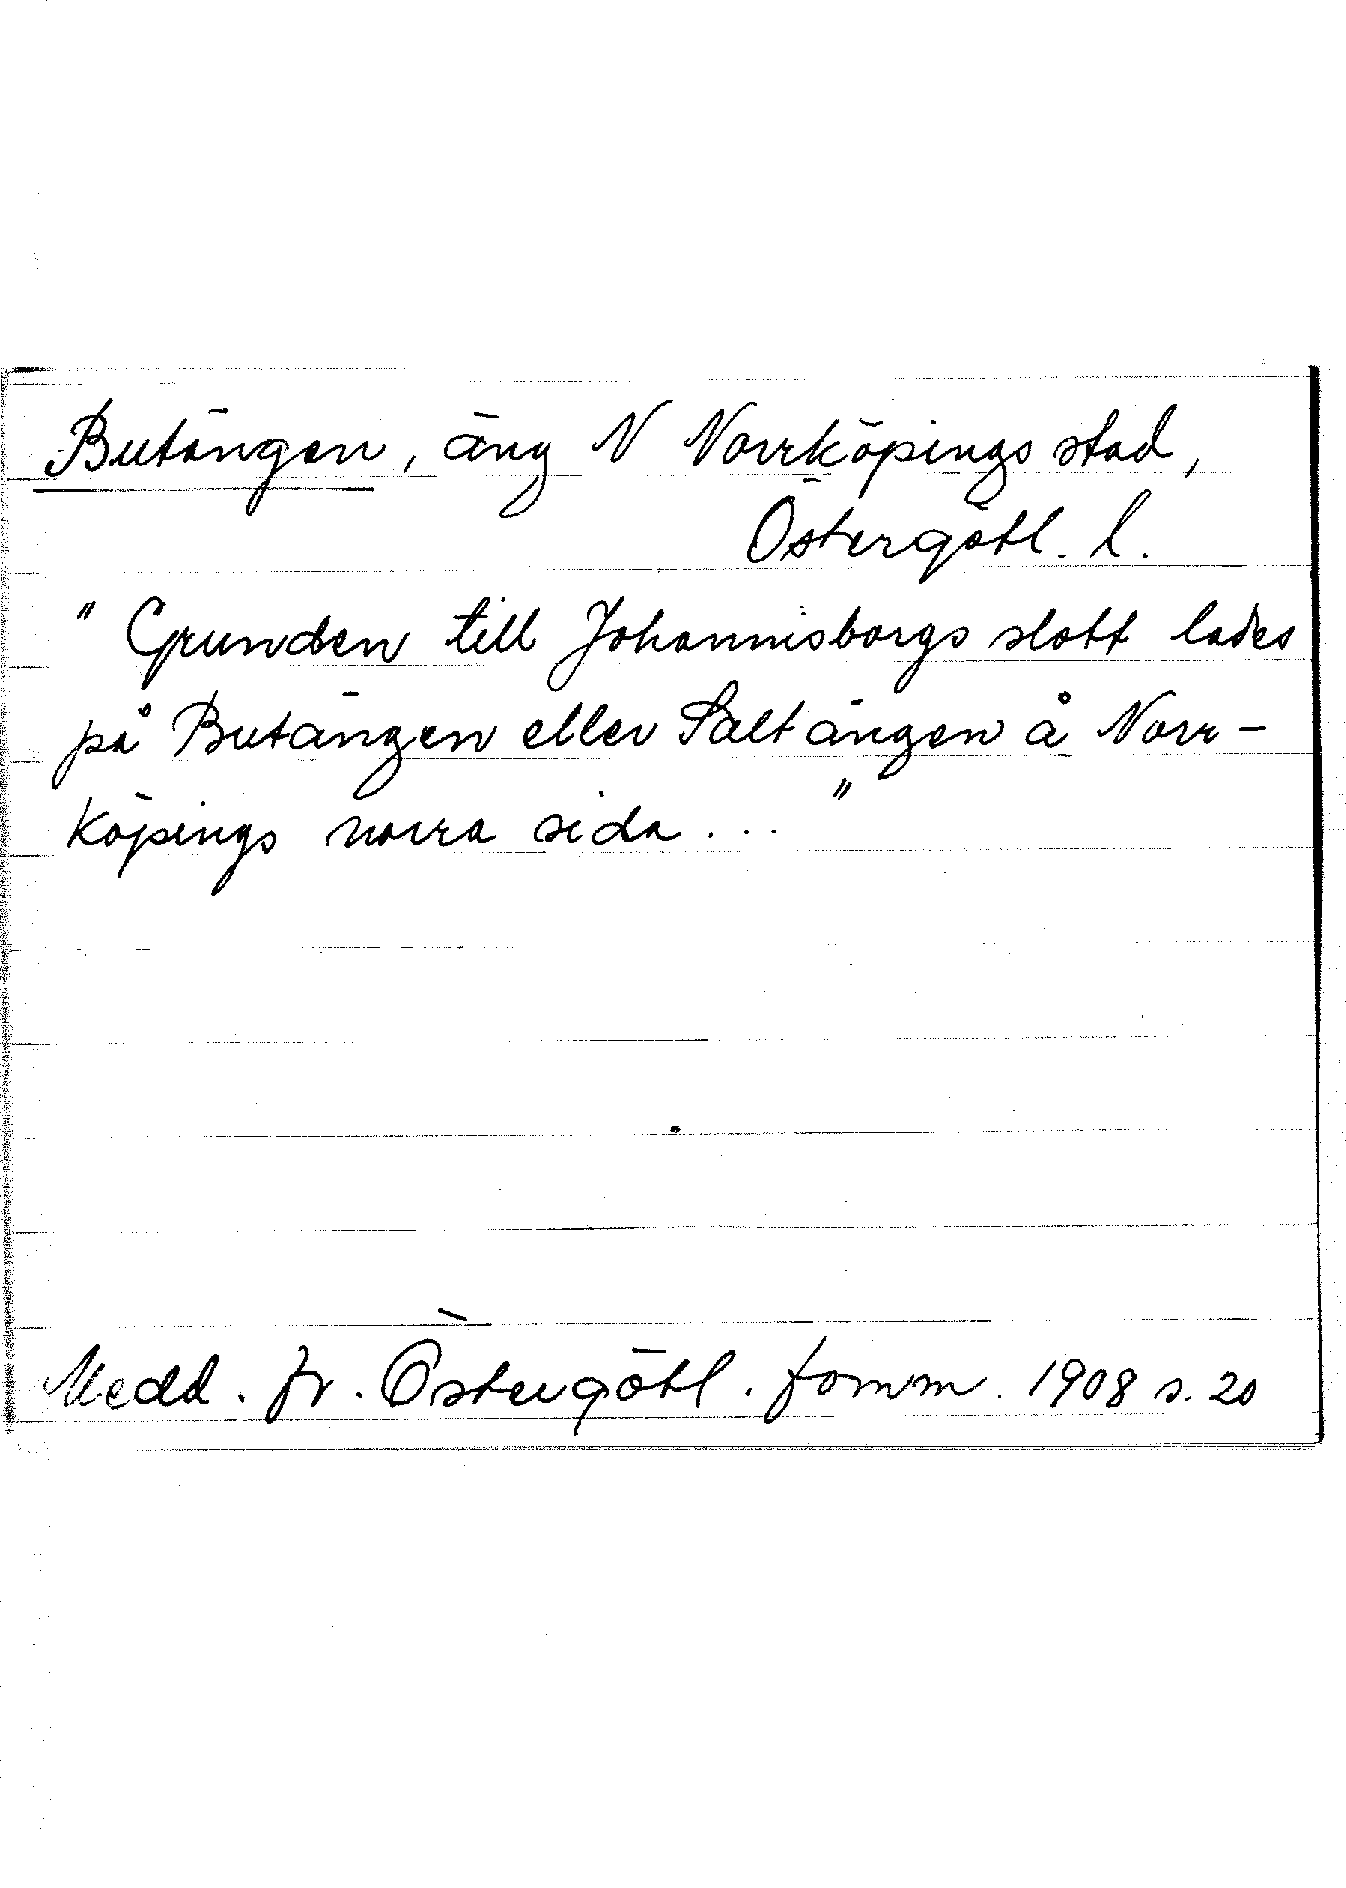 Butängen, äng N Norrköpings stad,
Östergötl. l.
" Grunden till Johannisborgs slott lades
på Butängen eller Saltängen å Norr-
köpings norra sida . . . "
Medd. fr. Östergötl. fornm. 1908 s. 20